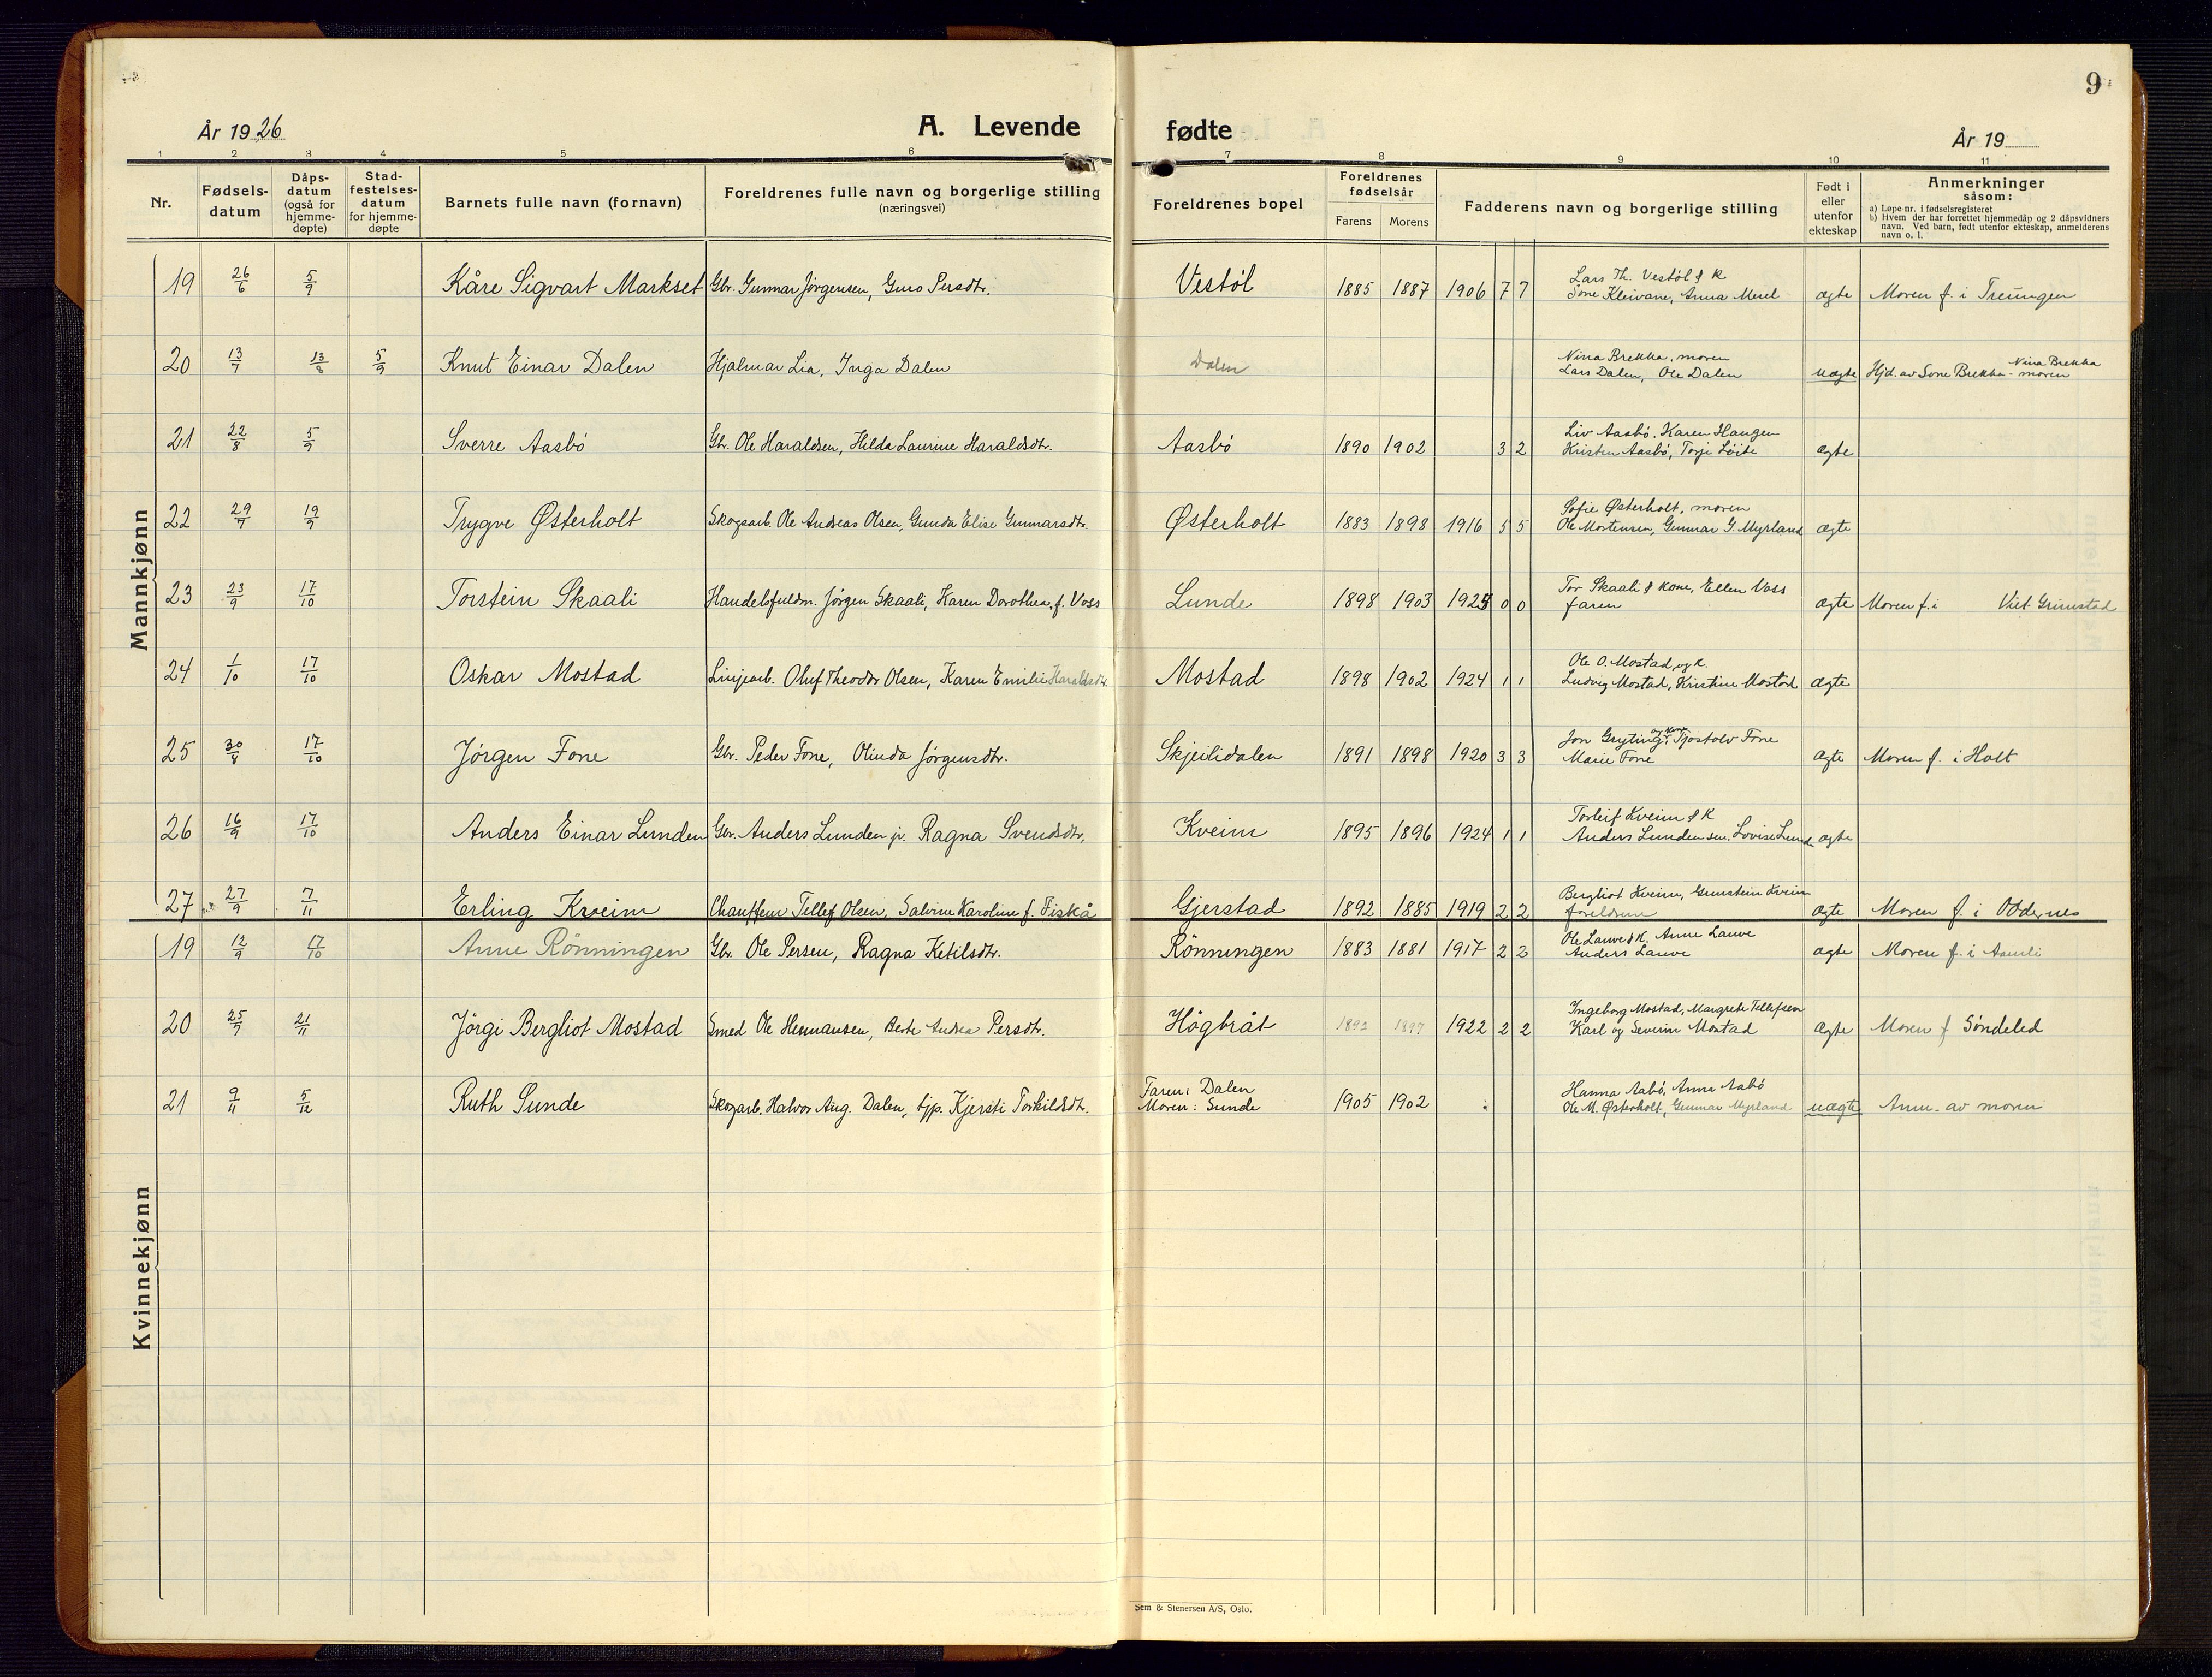 9
År 1926 A. Levende fødte År 19
1 2 3 4 5 6 7 8 9 10 11
Nr. Fødsels-datum Dåps-datum (også for hjemme-døpte) Stad-festelses-datum for hjemme-døpte Barnets fulle navn (fornavn) Foreldrenes fulle navn og borgerlige stilling (næringsvei) Foreldrenes bopel Foreldrenes fødselsår Farens Morens Fadderens navn og borgerlige stilling Født i eller utenfor ekteskap Anmerkninger såsom:
a) Løpe nr. i fødselsregisteret
b) Hvem der har forrettet hjemmedåp og 2 dåpsvidners navn. Ved barn, født utenfor ekteskap, anmelderens navn o. l.
Mannkjønn
19 26/6 5/9 Kåre Sigvart Markset Gbr. Gunnar Jørgensen, Guro Persdtr. Vestøl 1885 1887 1906 7 7 Lars Th. Vestøl & K
Sone Kleivane, Anna Merel ægte Moren f. i Treungen
20 13/7 13/8 5/9 Knut Einar Dalen Hjalmar Lia, Inga Dalen Dalen Nina Brekka, moren
Lars Dalen, Ole Dalen uægte Hjd. av Sone Brekka - Nina Brekka moren
21 22/8 5/9 Sverre Aasbö Gbr. Ole Haraldsen, Hilda Laurine Haraldsdtr. Aasbö 1890 1902 3 2 Liv Aasbö, Karen Haugen
Kristen Aasbö, Torje Löite ægte
22 29/7 19/9 Trygve Østerholt Skogsarb. Ole Andreas Olsen, Gunda Elise Gunnarsdtr. Østerholt 1883 1898 1916 5 5 Sofie Østerholt, moren
Ole Mortensen, Gunnar G. Myrland ægte
23 23/9 17/10 Torstein Skaali Handelsfuldm. Jörgen Skaali, Karen Dorothea, f. Voss Lunde 1898 1903 1925 0 0 Tor Skaali & kone, Ellen Voss
faren ægte Moren f. i Grimstad
24 1/10 17/10 Oskar Mostad Linjearb. Oluf Theodor Olsen, Karen Emilie Haraldsdtr. Mostad 1898 1902 1924 1 1 Ole O. Mostad og K.
Ludvig Mostad, Kristine Mostad ægte
25 30/8 17/10 Jörgen Fone Gbr. Peder Fone, Olinda Jörgensdtr. Skjeilidalen 1891 1898 1920 3 3 Jon Gryting og kone, Tjostolv Fone
Marie Fone ægte Moren f. i Holt
26 16/9 17/10 Anders Einar Lunden Gbr. Anders Lunden jr. Ragna Svendsdtr. Kveim 1895 1896 1924 1 1 Torleif Kveim & K
Anders Lunden sen. Lovise Lunde ægte
27 27/9 7/11 Erling Kveim Chauffeur Tellef Olsen, Salvine Karoline f. Fiskå Gjerstad 1892 1885 1919 2 2 Bergliot Kveim, Grunstein Kveim
foreldrene ægte Moren f. i Oddernes
Kvinnekjønn
19 12/9 17/10 Anne Rönningen Gbr. Ole Persen, Ragna Ketilsdtr. Rönningen 1883 1881 1917 2 2 Ole Lauve & K. Anne Lauve
Anders Lauve ægte Moren f. i Aamli
20 25/7 21/11 Jörgi Bergliot Mostad Smed Ole Hermansen, Berte Andrea Persdtr. Högbråt 1892 1897 1922 2 2 Ingeborg Mostad, Margrete Tellefsen
Karl og Severin Mostad ægte Moren f Söndeled
21 9/11 5/12 Ruth Sunde Skogarb. Halvor Aug. Dalen, tjp. Kjersti Torkildsdtr. Faren: Dalen
Moren: Sunde 1905 1902 Hanna Aabö, Anna Aabö
Ole M. Østerholt, Gunnar Myrland uægte Anm. av moren
Sem & Stenersen A/S, Oslo.